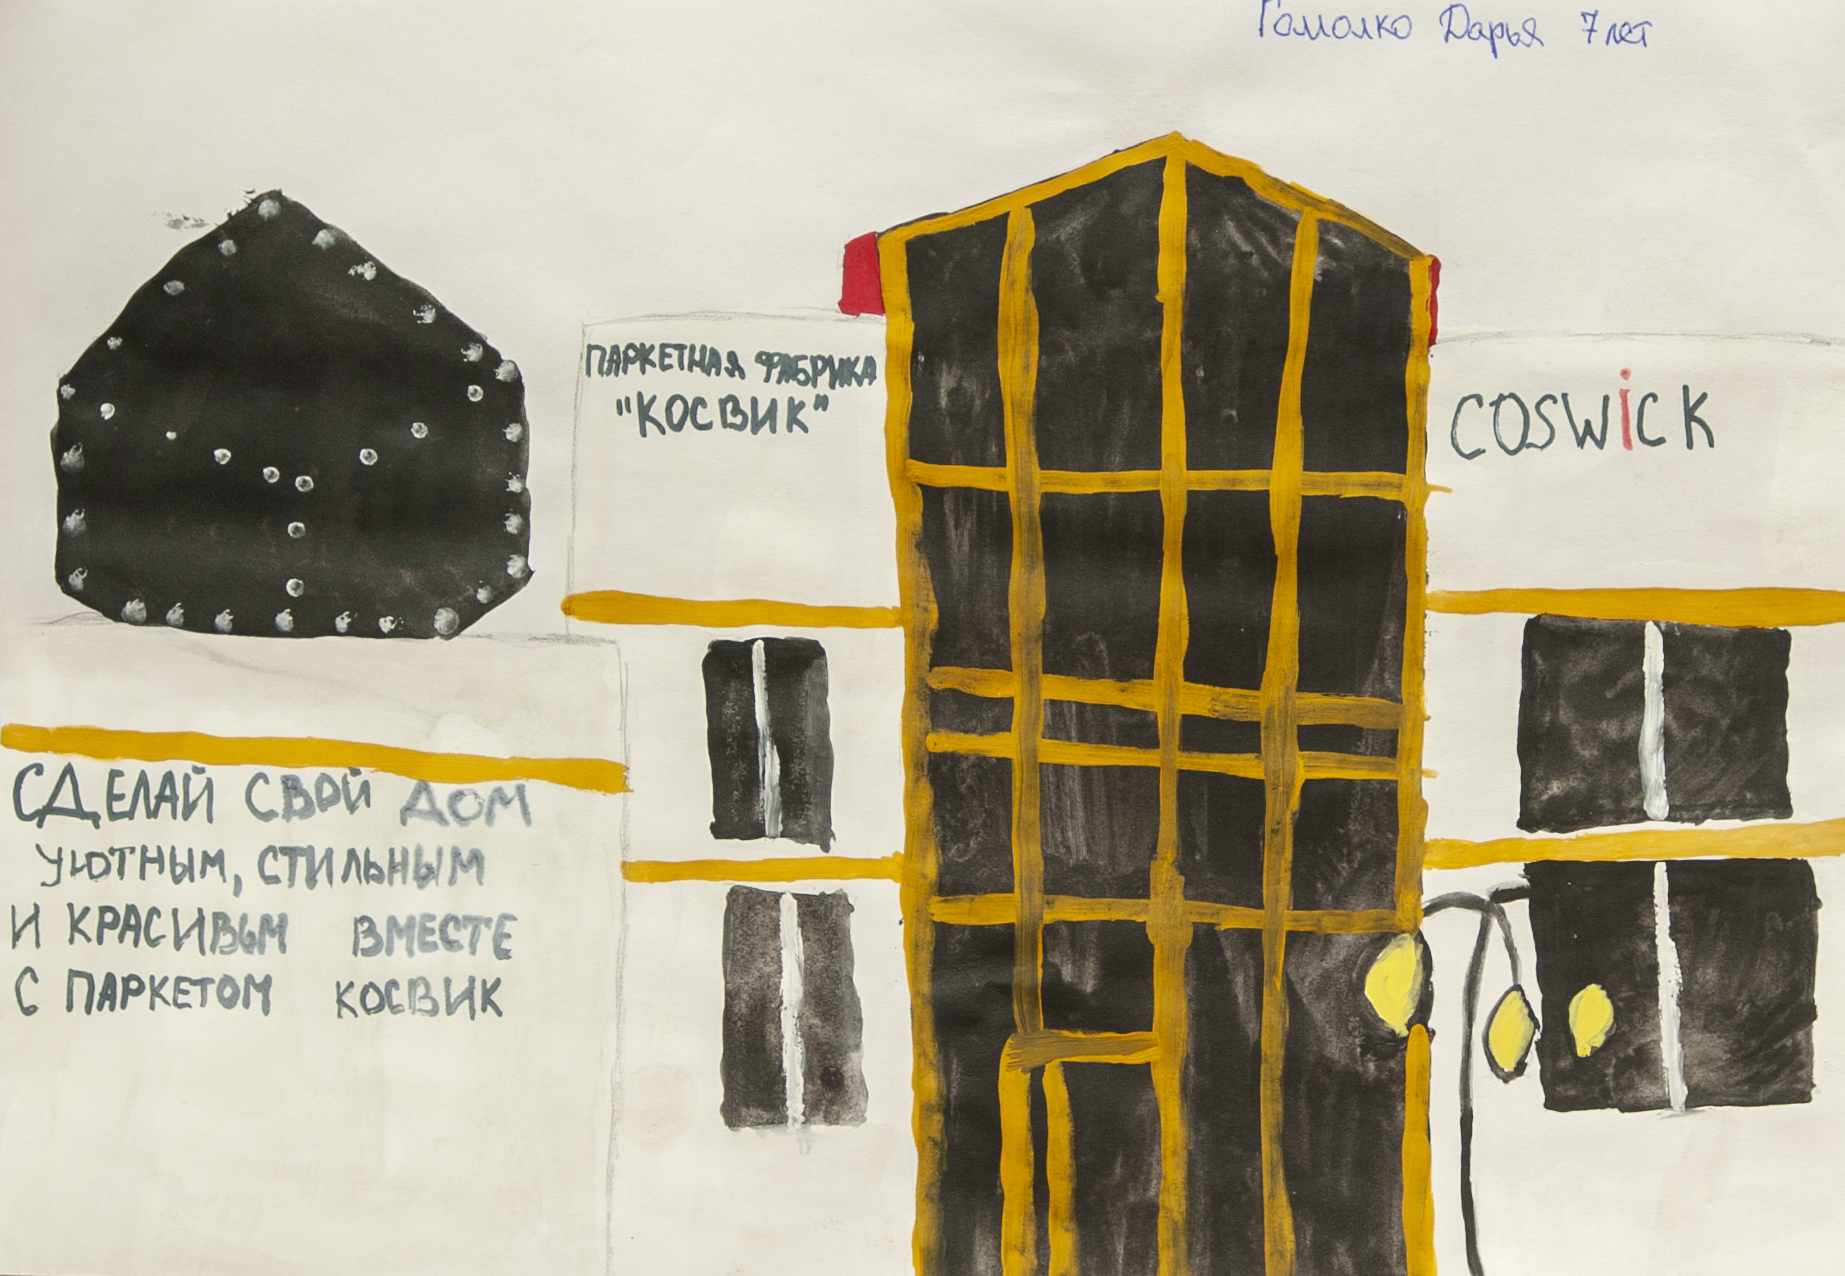 Гомолко Дарья 7 лет
ПАРКЕТНАЯ ФАБРИКА
"КОСВИК"
COSWiCK
СДЕЛАЙ СВОЙ ДОМ
УЮТНЫМ, СТИЛЬНЫМ
И КРАСИВЫМ ВМЕСТЕ
С ПАРКЕТОМ КОСВИК